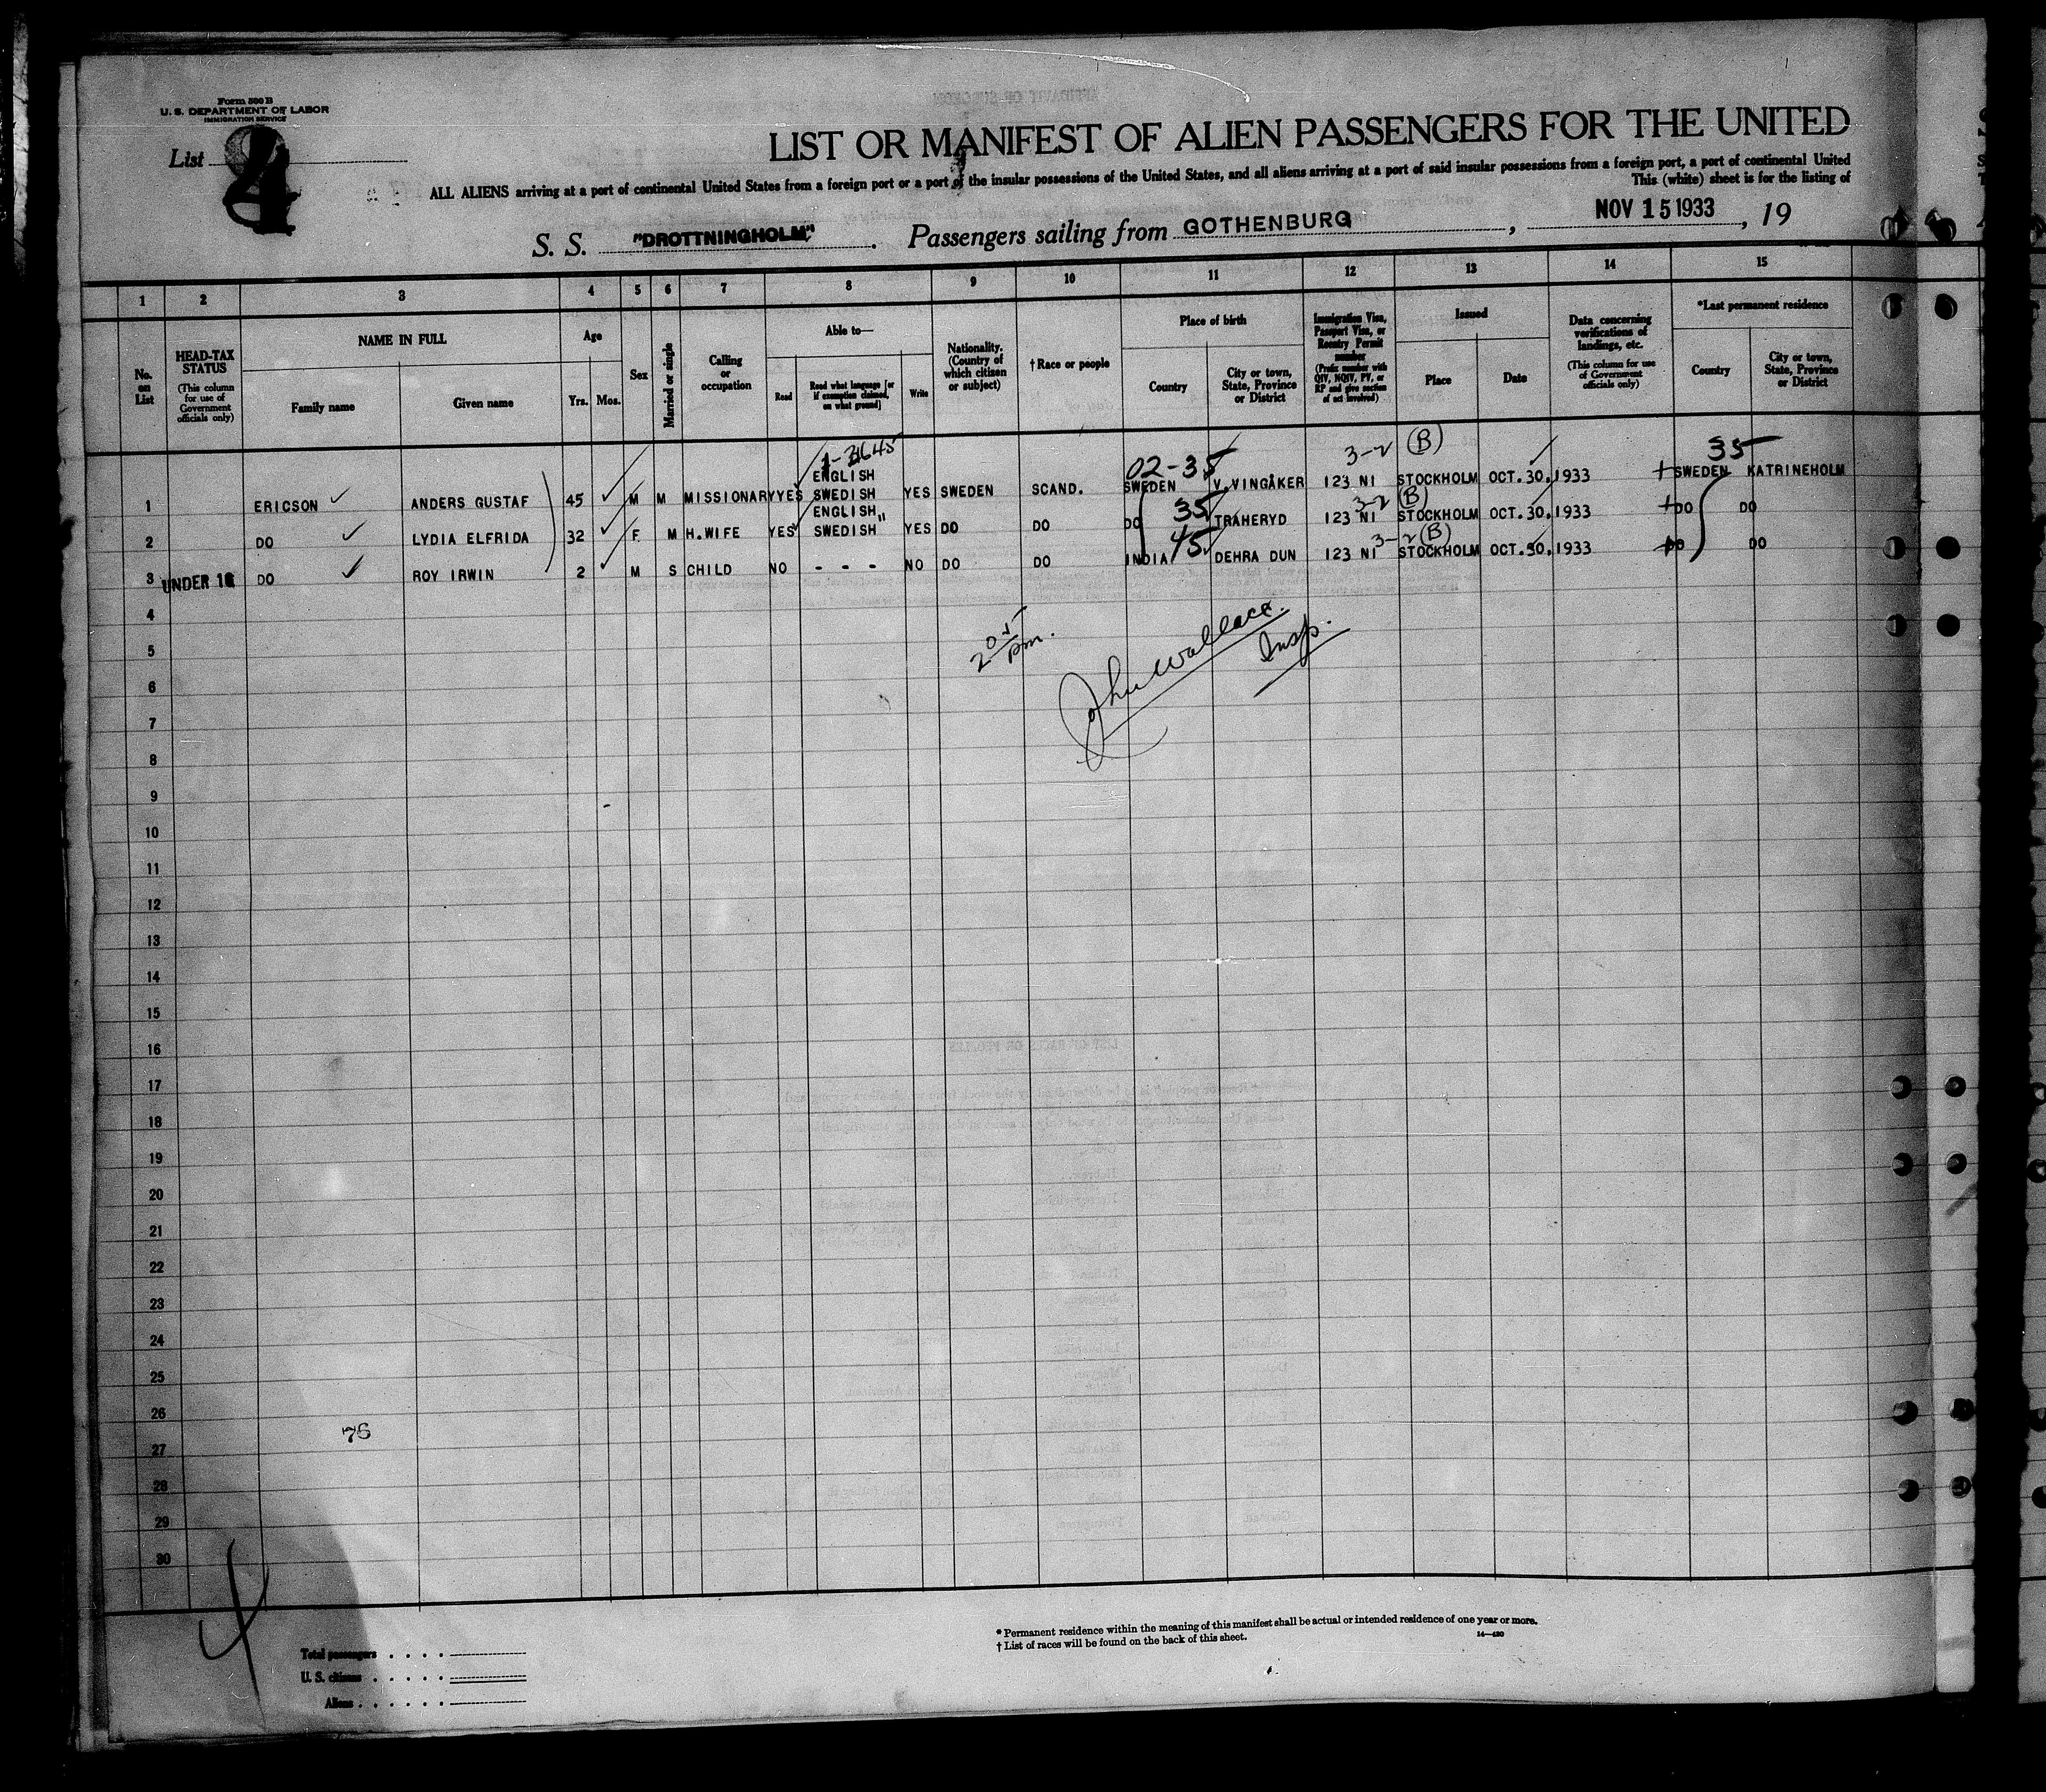 Form 500 B
U. S. DEPARTMENT OF LABOR
IMMIGRATION SERVICE
List 4
LIST OR MANIFEST OF ALIEN PASSENGERS FOR THE UNITED
ALL ALIENS arriving at a port of continental United States from a foreign port or a port of the insular possessions of the United States, and all aliens arriving at a port of said insular possessions from a foreign port, a port of continental United
This (white) sheet is for the listing of
S. S. "DROTTNINGHOLM" . Passengers sailing from GOTHENBURG , NOV 15 1933 , 19
1 2 3 4 5 6 7 8 9 10 11 12 13 14 15
No. on List
HEAD-TAX STATUS
(This column for use of Government officials only)
NAME IN FULL
Family name
Given name
Age
Yrs. Mos.
Sex
Married or single
Calling or occupation
Able to—
Read
Read what language [or if exemption claimed, on what ground]
Write
Nationality. (Country of which citizen or subject)
† Race or people
Place of birth
Country
City or town, State, Province or District
Immigration Visa, Passport Visa, or Reentry Permit number
(Prefix number with QIV, NQIV, PV, or RP and give section of act involved)
Issued
Place
Date
Data concerning verifications of landings, etc.
(This column for use of Government officials only)
*Last permanent residence
Country
City or town, State, Province or District
02-35 3-2 (B) 35
1 ERICSON ANDERS GUSTAF 45 M M MISSIONARY YES ENGLISH SWEDISH YES SWEDEN SCAND. SWEDEN V.VINGÅKER 123 NI STOCKHOLM OCT.30,1933 SWEDEN KATRINEHOLM
35 3-2 (B)
2 DO LYDIA ELFRIDA 32 F M H.WIFE YES ENGLISH SWEDISH " YES DO DO DO TRAHERYD 123 NI STOCKHOLM OCT.30,1933 DO DO
45 3-2 (B)
3 UNDER 16 DO ROY IRWIN 2 M S CHILD NO - - - NO DO DO INDIA DEHRA DUN 123 NI STOCKHOLM OCT.30,1933 DO DO
4
2 05 pm.
John Wallace.
Insp.
5
6
7
8
9
10
11
12
13
14
15
16
17
18
19
20
21
22
23
24
25
26
76
27
28
29
30
4
* Permanent residence within the meaning of this manifest shall be actual or intended residence of one year or more.
† List of races will be found on the back of this sheet.
Total passengers . . . .
U. S. citizens . . . . .
Aliens . . . . . .